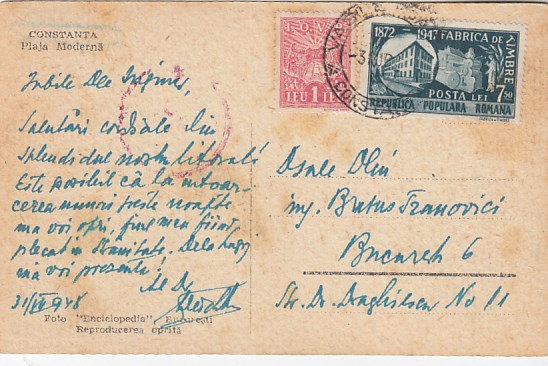 CONSTANTA
Plaja Modernă
Iubite Dle Inginer,
Salutări cordiale din
splendidul nostru litoral.
Este posibil că la intoar-
cerea numai peste noapte
ma voi opri, fiind
plecat in străinătate. Dela
ma voi prezenta.
Al Dv
31/VII 948
Foto "Enciclopedia", Bucuresti
Reproducerea oprită
I.O.V.R.
LEU 1 LEU
1872 1947 FABRICA DE TIMBRE
POSTA LEI 7.50
REPUBLICA POPULARA ROMANA
CONST
Dsale Dlui
ing. Brutus Iranovici
Bucuresti 6
Str. Dr. No 11